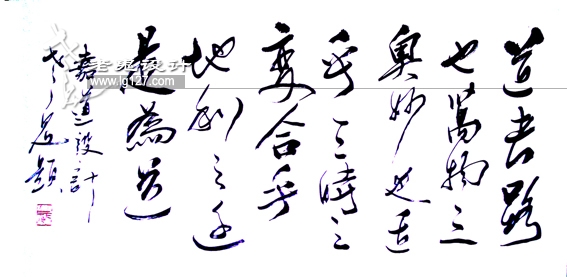 道者路
也萬物之
奥妙也适
乎天時之
變合乎
地利之宜
是為道
嘉道設計
題
设计
www.lg127.com